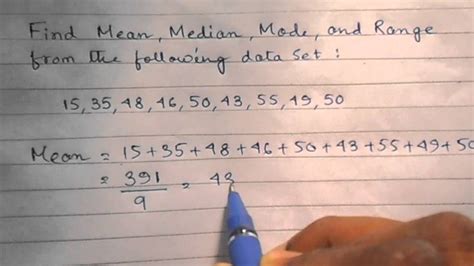 Find Mean, Median, Mode, and Range
from the following data set :
15, 35, 48, 46, 50, 43, 55, 49, 50
Mean = 15+35+48+46+50+43+55+49+50
= 391/9 = 43